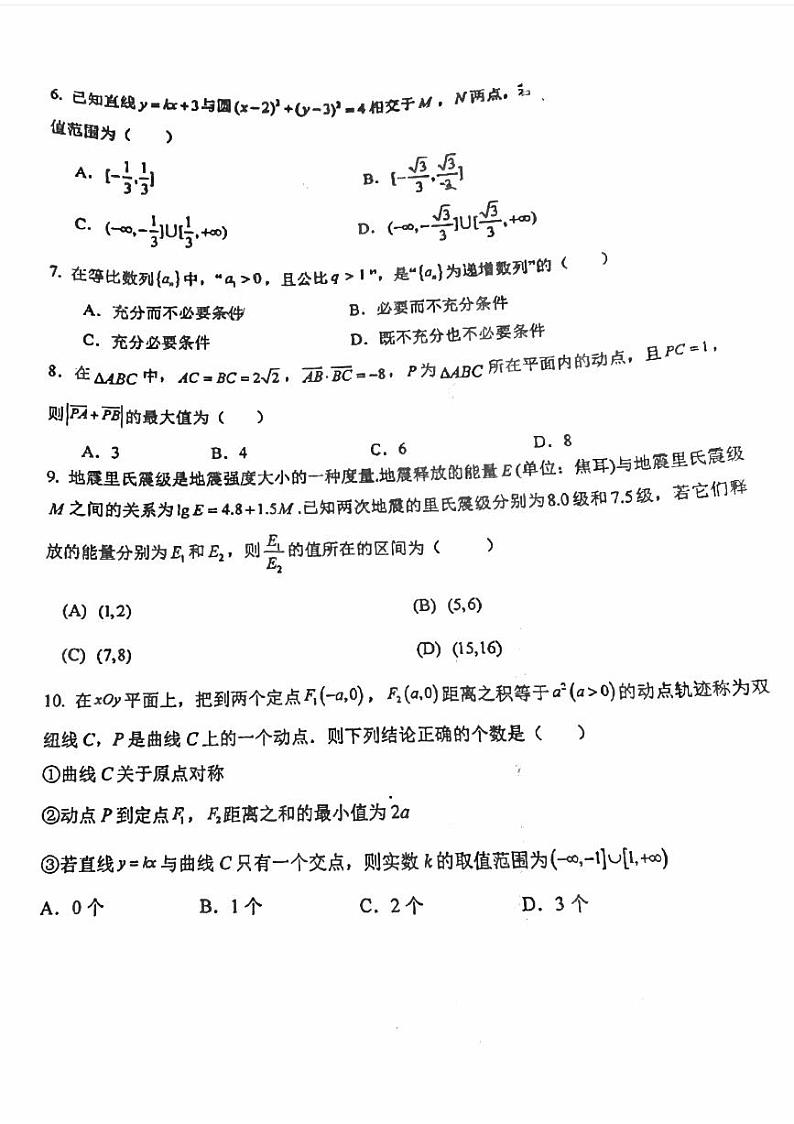 6. 已知直线y=kx+3与圆(x-2)²+(y-3)²=4相交于M，N两点，
值范围为（ ）
A. [-1/3,1/3]
B. [-√3/3,√3/3]
C. (-∞,-1/3]∪[1/3,+∞)
D. (-∞,-√3/3]∪[√3/3,+∞)
7. 在等比数列{aₙ}中，“a₁>0，且公比q>1”，是“{aₙ}为递增数列”的（ ）
A. 充分而不必要条件
B. 必要而不充分条件
C. 充分必要条件
D. 既不充分也不必要条件
8. 在△ABC中，AC=BC=2√2，AB·BC=-8，P为△ABC所在平面内的动点，且PC=1，
则|PA+PB|的最大值为（ ）
A. 3
B. 4
C. 6
D. 8
9. 地震里氏震级是地震强度大小的一种度量.地震释放的能量E(单位：焦耳)与地震里氏震级
M之间的关系为lgE=4.8+1.5M.已知两次地震的里氏震级分别为8.0级和7.5级，若它们释
放的能量分别为E₁和E₂，则E₁/E₂的值所在的区间为（ ）
(A) (1,2)
(B) (5,6)
(C) (7,8)
(D) (15,16)
10. 在xOy平面上，把到两个定点F₁(-a,0)，F₂(a,0)距离之积等于a²(a>0)的动点轨迹称为双
纽线C，P是曲线C上的一个动点．则下列结论正确的个数是（ ）
①曲线C关于原点对称
②动点P到定点F₁，F₂距离之和的最小值为2a
③若直线y=kx与曲线C只有一个交点，则实数k的取值范围为(-∞,-1]∪[1,+∞)
A. 0个
B. 1个
C. 2个
D. 3个